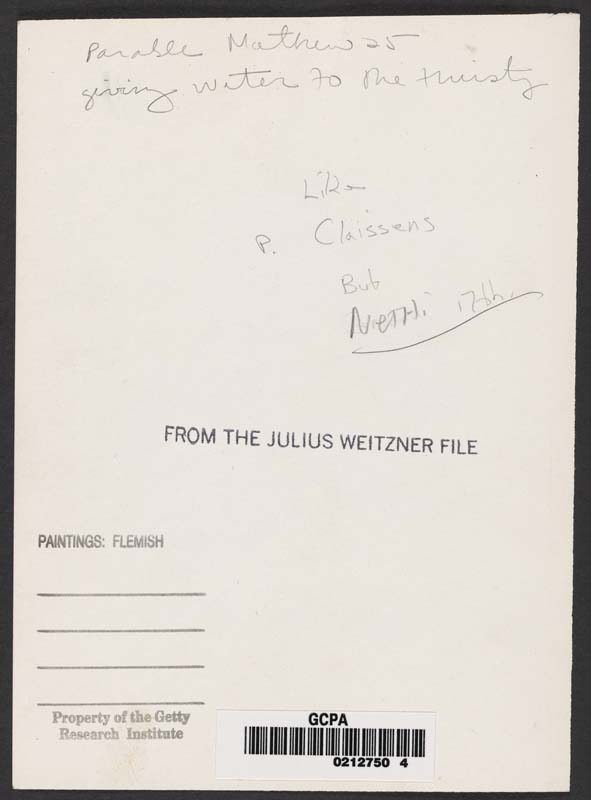 Parable Mathew 25
giving water to the thirsty
Like
P. Claissens
But
Neth. 17th.
FROM THE JULIUS WEITZNER FILE
PAINTINGS: FLEMISH
Property of the Getty
Research Institute
GCPA
0212750 4